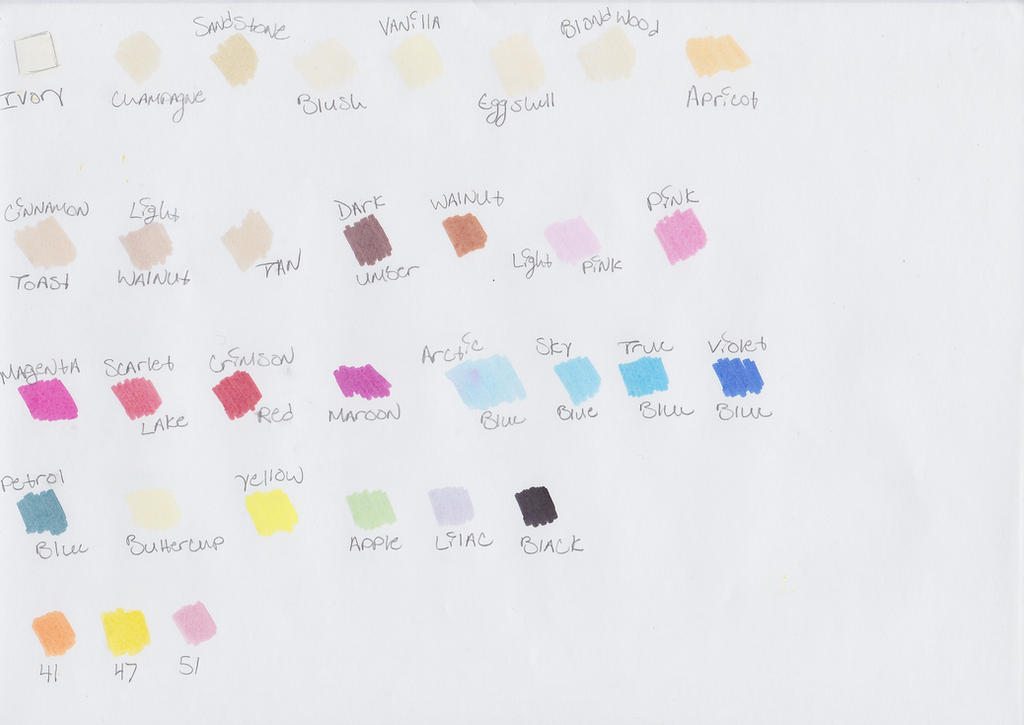 Sandstone VANillA Blondwood
Ivory CHAMPAGNE Blush Eggshell Apricot
CiNNAMON Light DARK WAlNUt PiNK
TOAST WAlNUt TAN UMBER Light PiNK
MAGENTA Scarlet CRiMSON Arctic Sky True Violet
LAKE Red MAROON Blue Blue Blue Blue
Petrol Yellow
Blue Buttercup APPlE LilAC BlACK
41 47 51